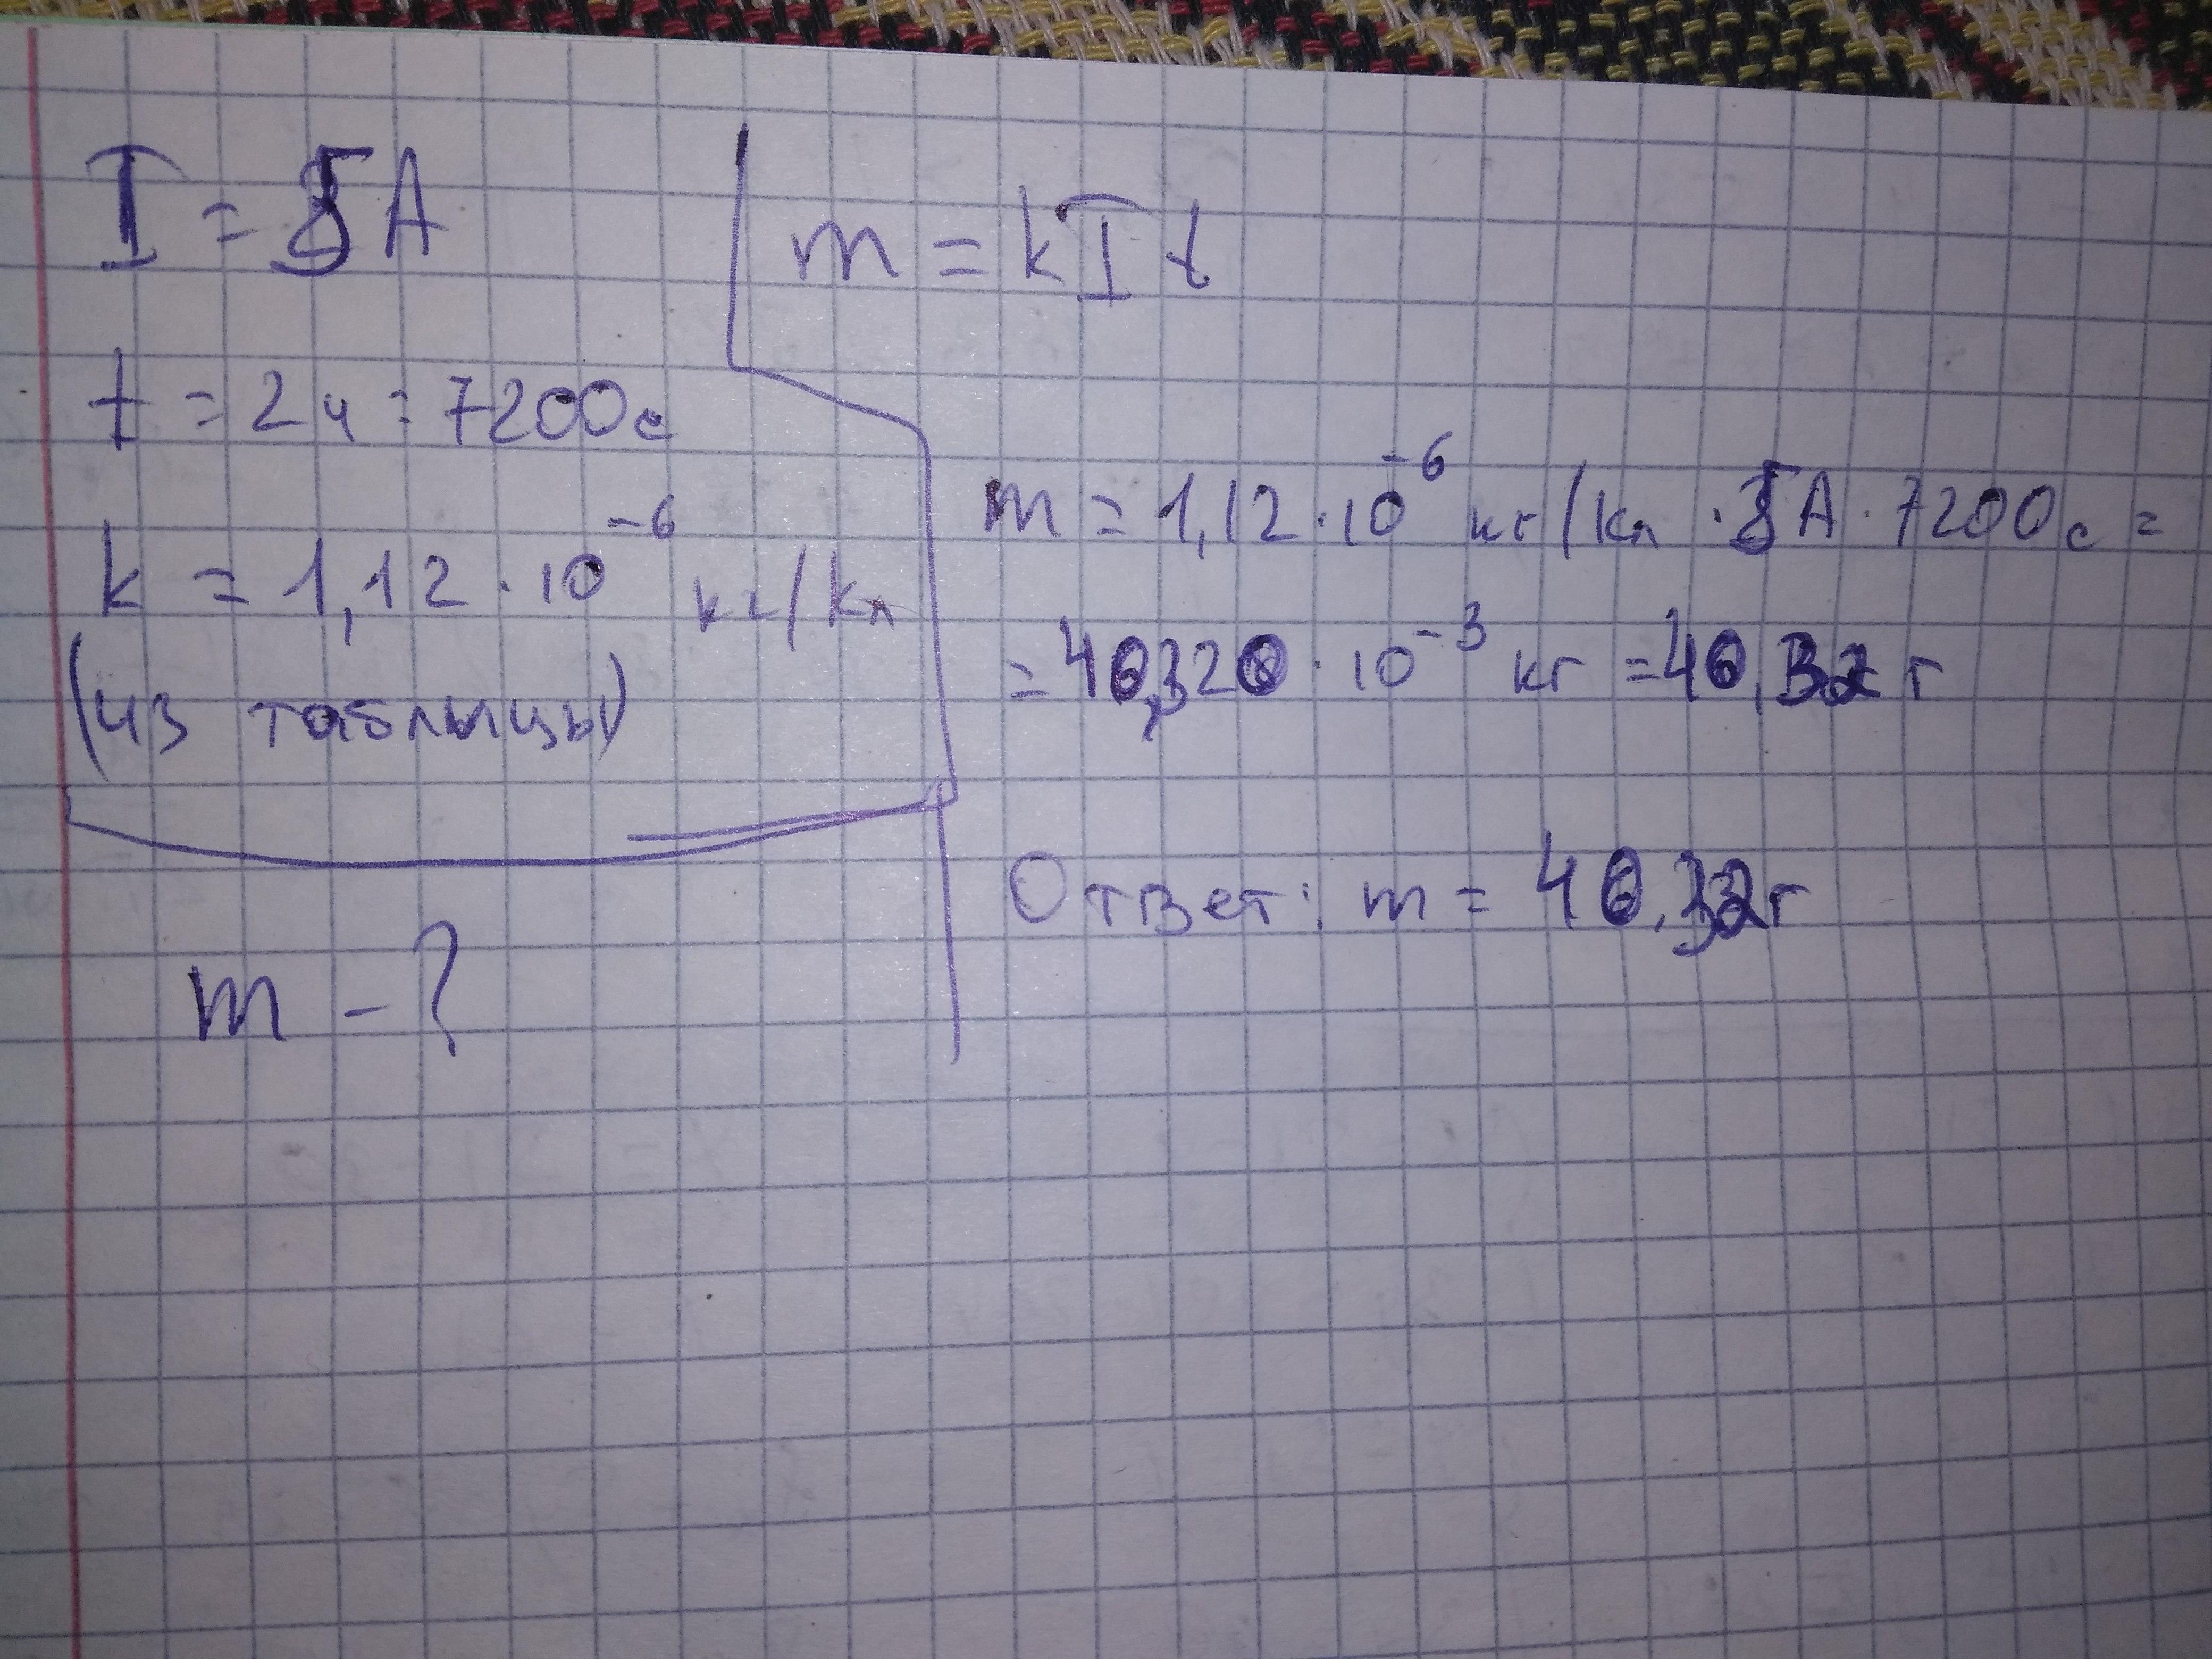 I = 5 A
t = 2ч = 7200с
k = 1,12 · 10⁻⁶ кг/Кл
(из таблицы)
m - ?
m = kIt
m = 1,12 · 10⁻⁶ кг/Кл · 5А · 7200с =
= 40,320 · 10⁻³ кг = 40,32 г
Ответ: m = 40,32г